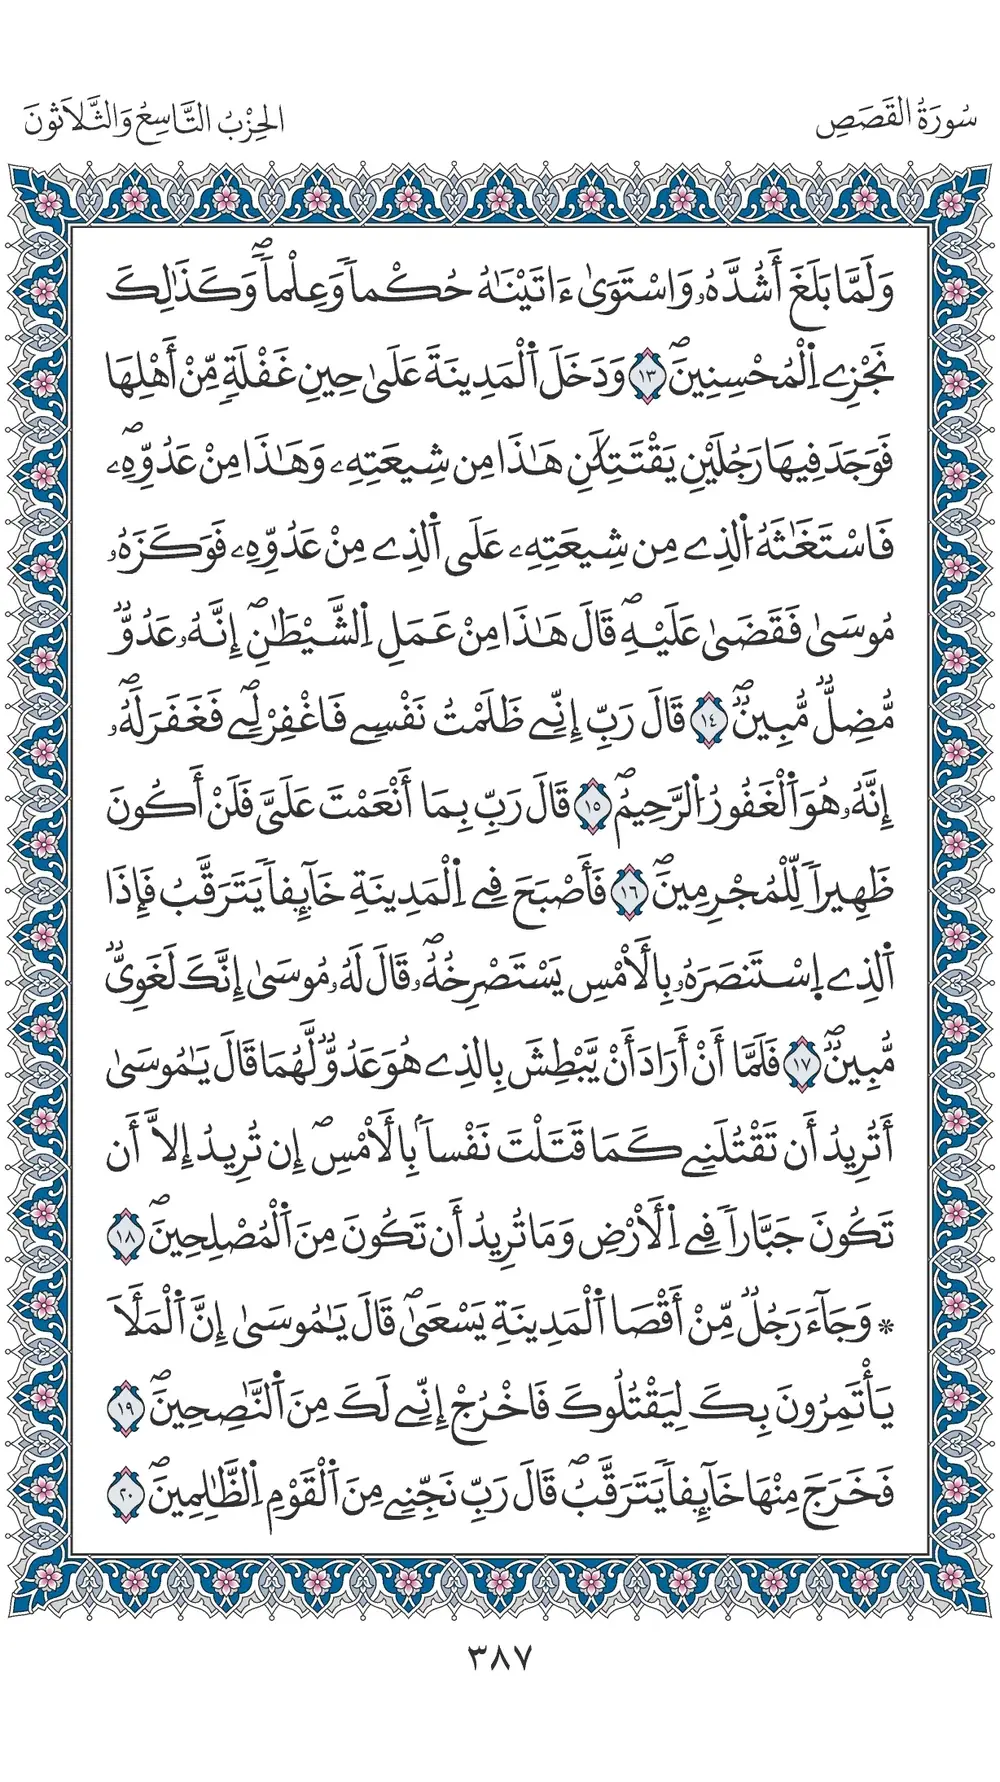 سُورَةُ القَصَصِ
الحِزْبُ التَّاسِعُ وَالثَّلَاثُونَ
وَلَمَّا بَلَغَ أَشُدَّهُۥ وَاسْتَوَىٰ ءَاتَيْنَٰهُ حُكْماٗ وَعِلْماٗۖ وَكَذَٰلِكَ
نَجْزِے اِ۬لْمُحْسِنِينَۖ ١٣ وَدَخَلَ اَ۬لْمَدِينَةَ عَلَىٰ حِينِ غَفْلَةٖ مِّنْ أَهْلِهَا
فَوَجَدَ فِيهَا رَجُلَيْنِ يَقْتَتِلَٰنِ هَٰذَا مِن شِيعَتِهِۦ وَهَٰذَا مِنْ عَدُوِّهِۦۖ
فَاسْتَغَٰثَهُ اُ۬لذِے مِن شِيعَتِهِۦ عَلَى اَ۬لذِے مِنْ عَدُوِّهِۦ فَوَكَزَهُۥ
مُوسَىٰ فَقَضَىٰ عَلَيْهِۖ قَالَ هَٰذَا مِنْ عَمَلِ اِ۬لشَّيْطَٰنِۖ إِنَّهُۥ عَدُوّٞ
مُّضِلّٞ مُّبِينٞۖ ١٤ قَالَ رَبِّ إِنِّے ظَلَمْتُ نَفْسِے فَاغْفِرْ لِےۖ فَغَفَرَ لَهُۥۖ
إِنَّهُۥ هُوَ اَ۬لْغَفُورُ اُ۬لرَّحِيمُۖ ١٥ قَالَ رَبِّ بِمَا أَنْعَمْتَ عَلَيَّ فَلَنْ أَكُونَ
ظَهِيراٗ لِّلْمُجْرِمِينَۖ ١٦ فَأَصْبَحَ فِے اِ۬لْمَدِينَةِ خَآئِفاٗ يَتَرَقَّبُ فَإِذَا
اَ۬لذِے اِ۪سْتَنصَرَهُۥ بِالْأَمْسِ يَسْتَصْرِخُهُۥۖ قَالَ لَهُۥ مُوسَىٰ إِنَّكَ لَغَوِيّٞ
مُّبِينٞۖ ١٧ فَلَمَّا أَنْ أَرَادَ أَنْ يَّبْطِشَ بِالذِے هُوَ عَدُوّٞ لَّهُمَا قَالَ يَٰمُوسَىٰ
أَتُرِيدُ أَن تَقْتُلَنِے كَمَا قَتَلْتَ نَفْساَۢ بِالْأَمْسِۖ إِن تُرِيدُ إِلَّا أَن
تَكُونَ جَبَّاراٗ فِے اِ۬لْأَرْضِ وَمَا تُرِيدُ أَن تَكُونَ مِنَ اَ۬لْمُصْلِحِينَۖ ١٨
* وَجَآءَ رَجُلٞ مِّنْ أَقْصَا اَ۬لْمَدِينَةِ يَسْعَىٰۖ قَالَ يَٰمُوسَىٰ إِنَّ اَ۬لْمَلَأَ
يَأْتَمِرُونَ بِكَ لِيَقْتُلُوكَ فَاخْرُجْ إِنِّے لَكَ مِنَ اَ۬لنَّٰصِحِينَۖ ١٩
فَخَرَجَ مِنْهَا خَآئِفاٗ يَتَرَقَّبُۖ قَالَ رَبِّ نَجِّنِے مِنَ اَ۬لْقَوْمِ اِ۬لظَّٰلِمِينَۖ ٢٠
٣٨٧